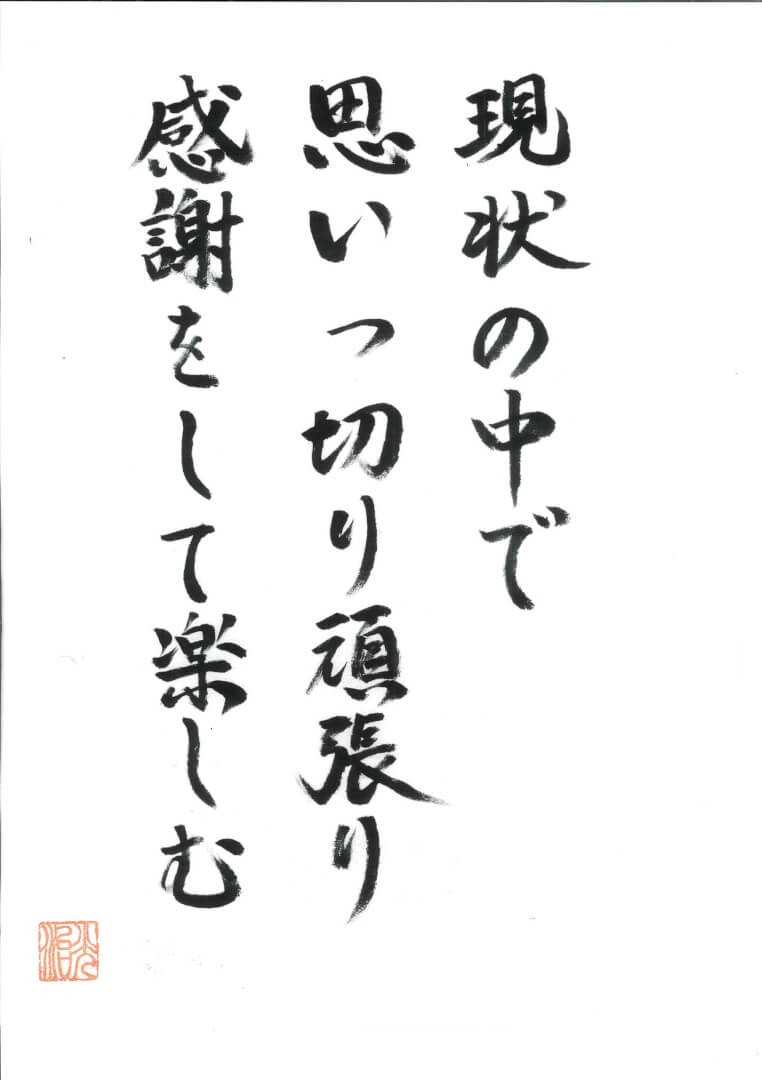 現状の中で
思いっ切り頑張り
感謝をして楽しむ